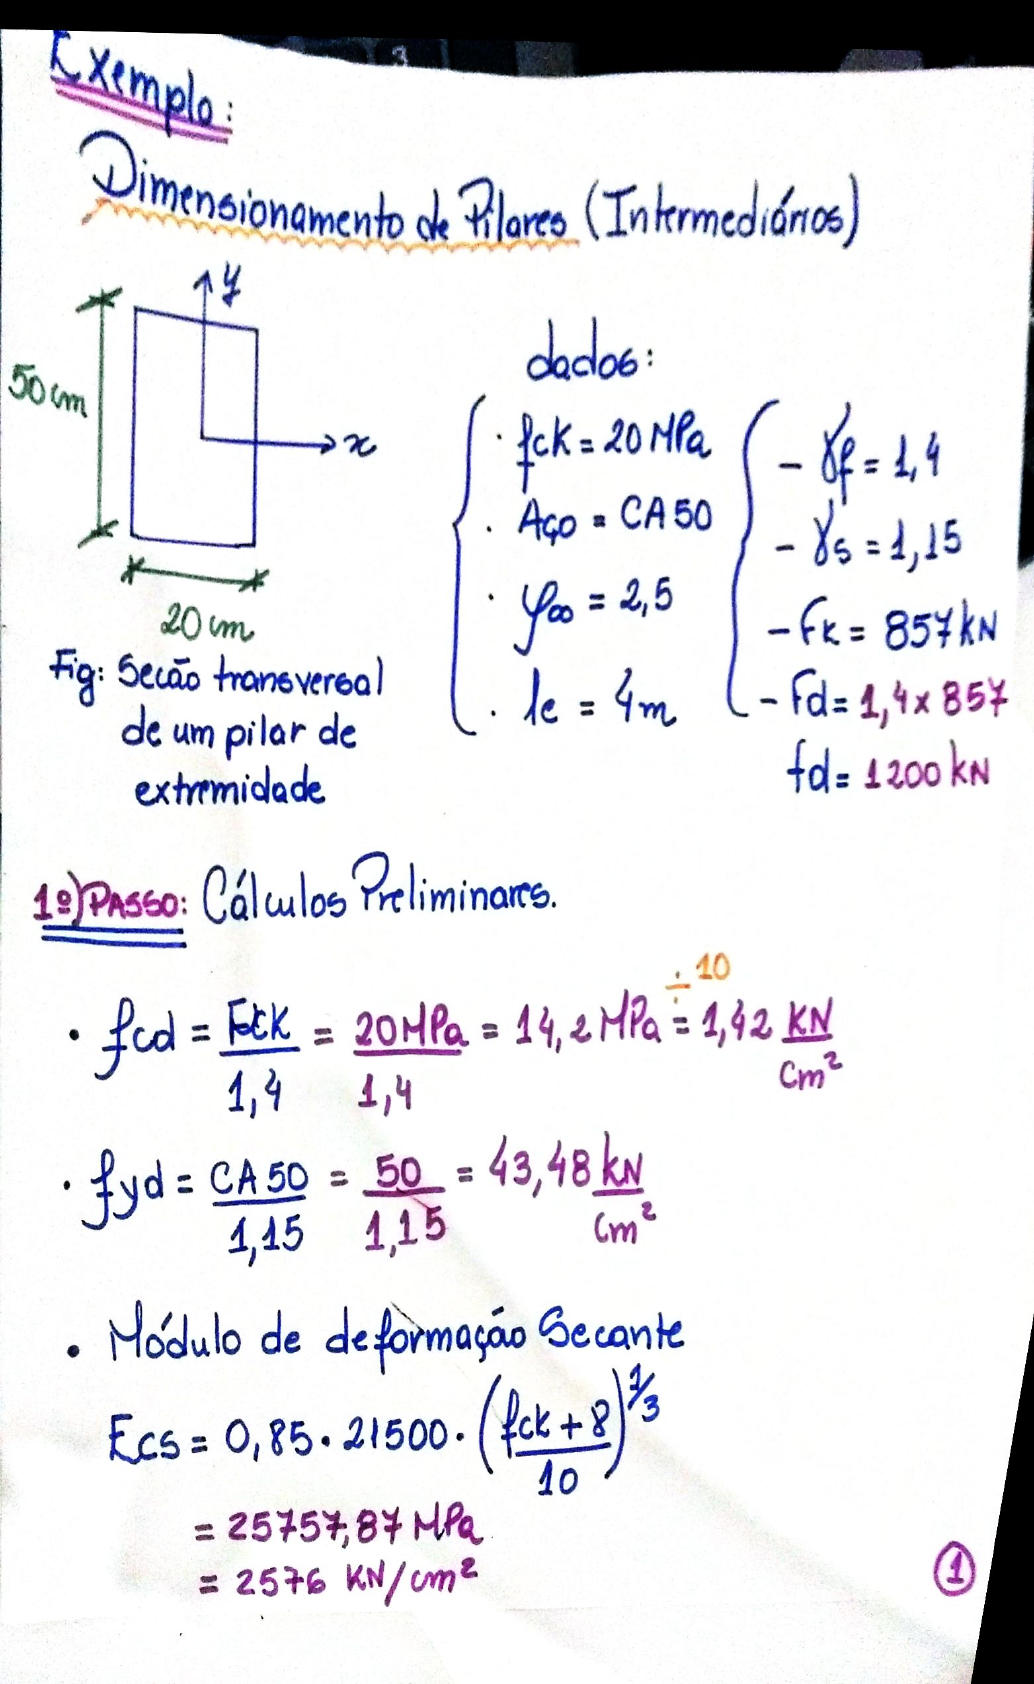 Exemplo:
Dimensionamento de Pilares (Intermediários)
y
50 cm
x
20 cm
Fig: Secão transversal
de um pilar de
extremidade
dados:
· fck = 20 MPa
· Aço = CA 50
· φ∞ = 2,5
· le = 4m
- γf = 1,4
- γs = 1,15
- Fk = 857 kN
- Fd = 1,4 x 857
fd = 1200 kN
1º) PASSO: Cálculos Preliminares.
÷ 10
· fcd = Fck / 1,4 = 20 MPa / 1,4 = 14,2 MPa = 1,42 KN / cm²
· fyd = CA 50 / 1,15 = 50 / 1,15 = 43,48 kN / cm²
• Módulo de deformação Secante
Ecs = 0,85 · 21500 · (fck + 8 / 10)^1/3
= 25757,87 MPa
= 2576 KN/cm²
1